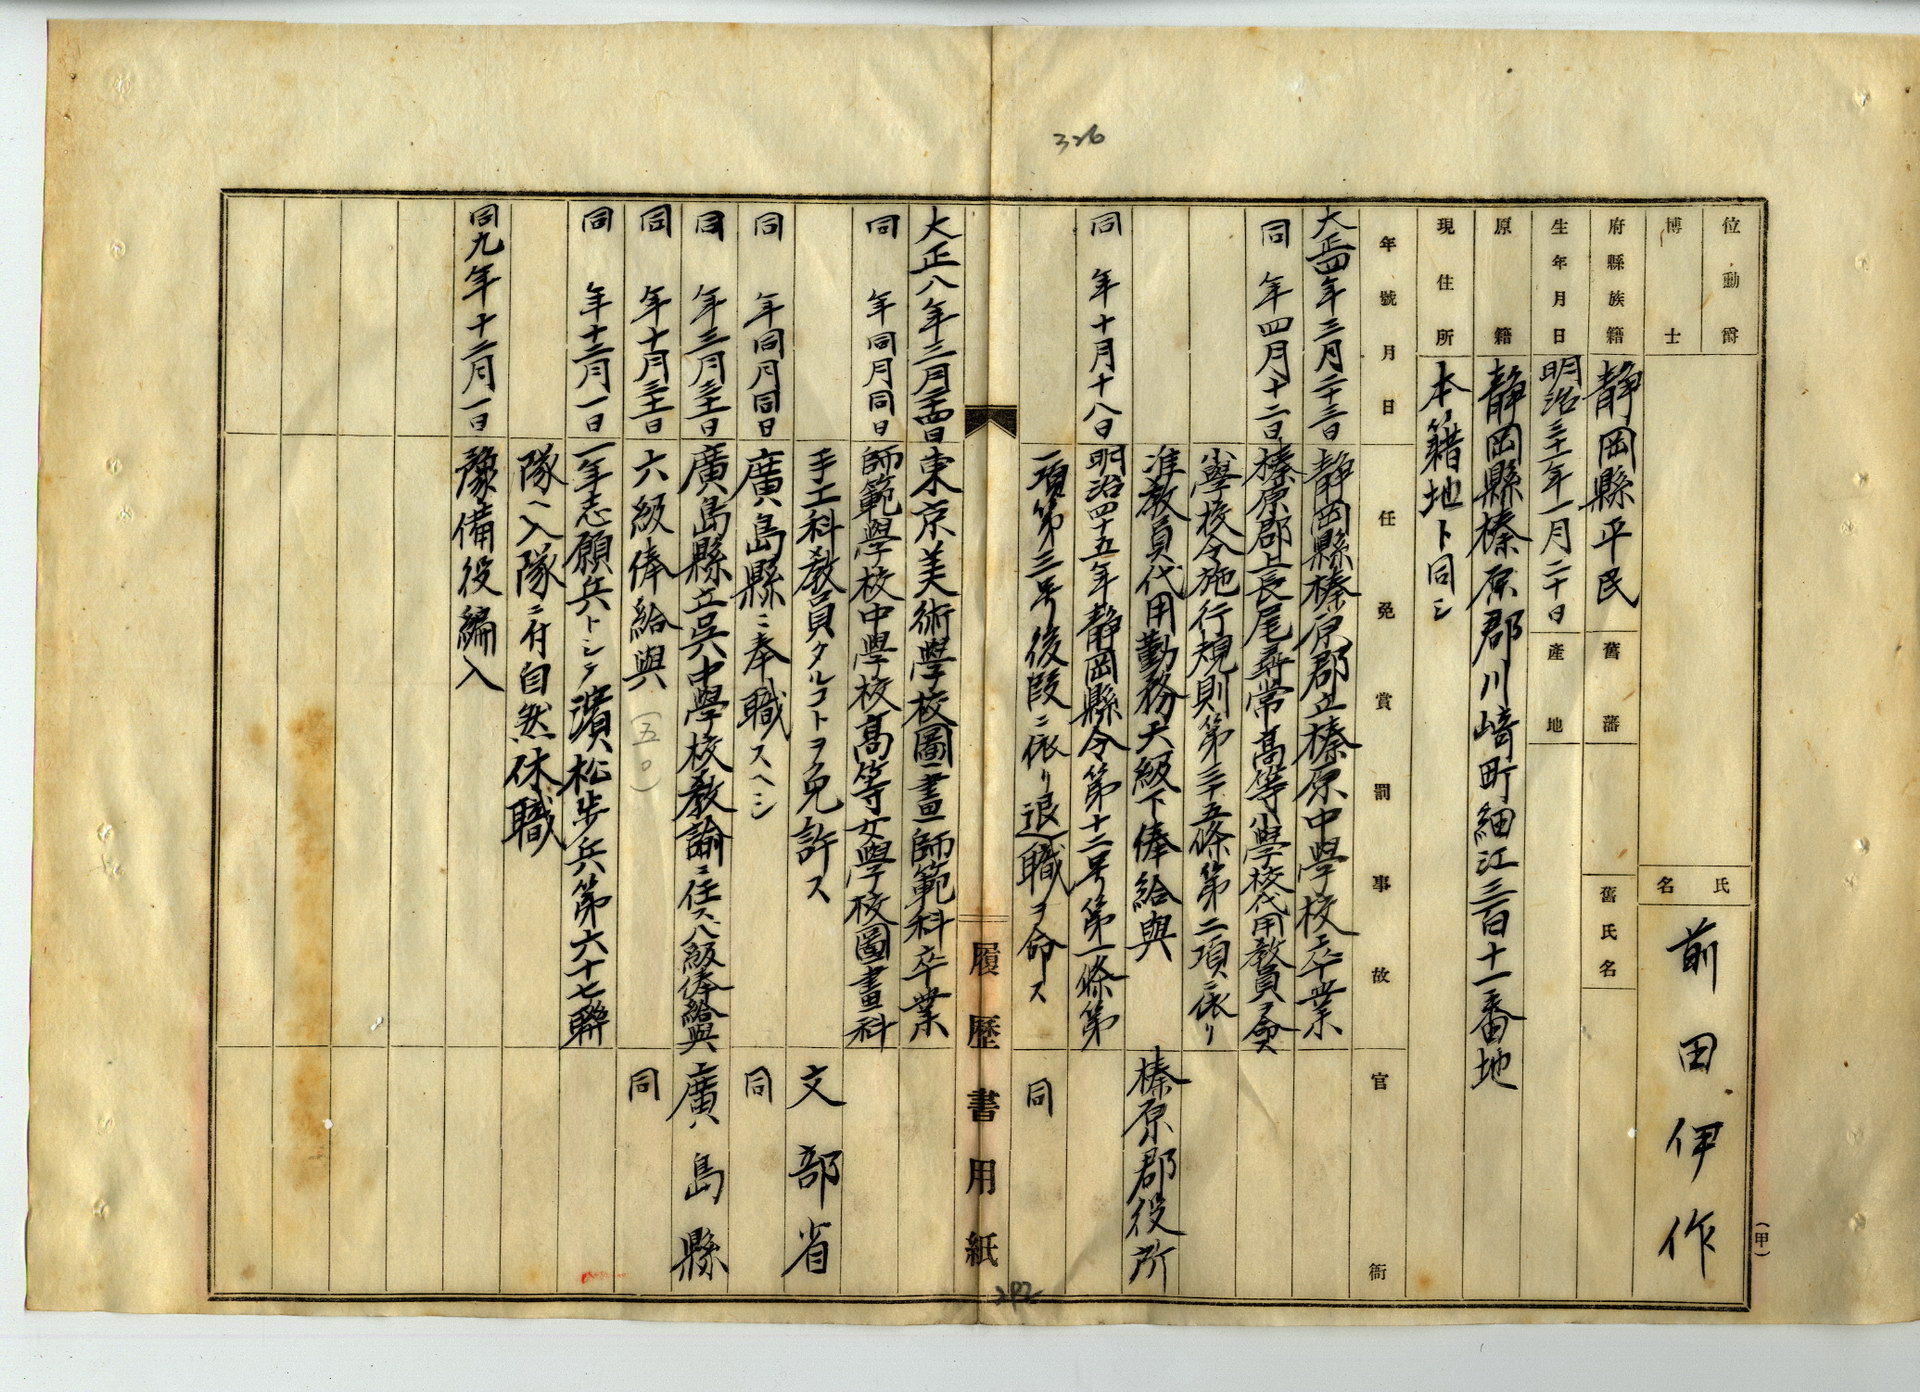 326
(甲)
位勳爵
博士
氏名
前田伊作
府縣族籍
靜岡縣平民
舊藩
舊氏名
生年月日
明治三十一年一月二十日
產地
原籍
靜岡縣榛原郡川﨑町細江三百十一番地
現住所
本籍地ト同シ
年號月日
任免賞罰事故
官衙
大正四年三月二十三日
靜岡縣榛原郡立榛原中學校卒業
同年四月十二日
榛原郡上長尾尋常高等小學校代用教員ヲ命ス
小學校令施行規則第三五條第二項ニ依リ
准教員代用勤務
級下俸給與
榛原郡役所
同年十月十八日
明治四十五年靜岡縣令第十二号第一條第
一項第三号後段ニ依リ退職ヲ命ス
同
履歷書用紙
292
大正八年三月
日
東京美術學校圖畫師範科卒業
同年同月同日
師範學校中學校高等女學校圖畫科
手工科教員タルコトヲ免許ス
文部省
同年同月同日
廣島縣ニ奉職スヘシ
同
同年三月三十一日
廣島縣立呉中學校教諭ニ任ス八級俸給與
廣島縣
同年十月三十一日
六級俸給與
(五〇)
同
同年十二月一日
一年志願兵トシテ濱松步兵第六十七聯
隊ヘ入隊ニ付自然休職
同九年十二月一日
豫備役編入